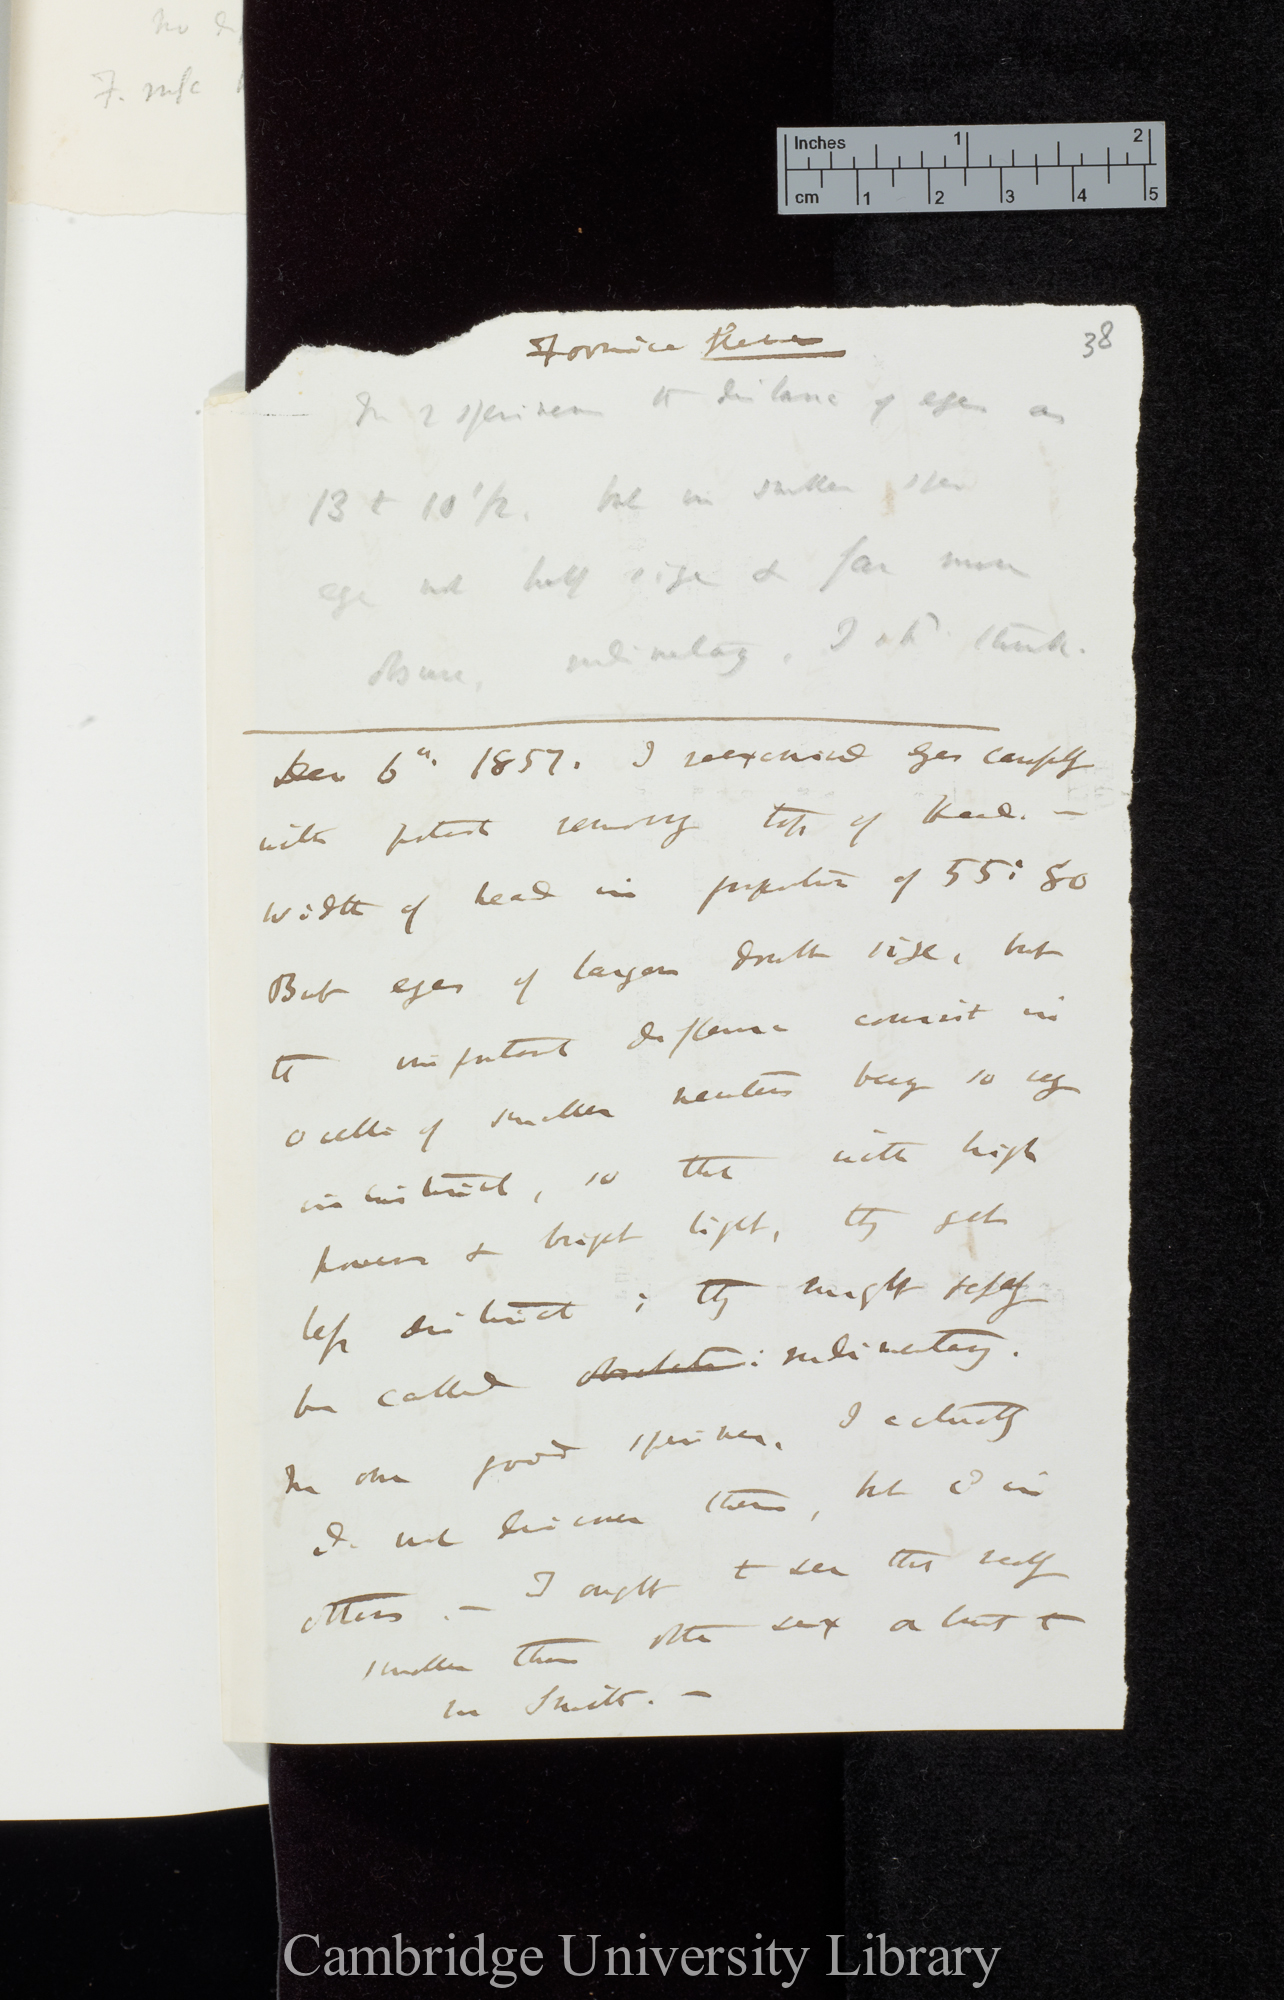 no d
F. rufa
Inches 1 2
cm 1 2 3 4 5
38
Formica flava
In 2 specimens the distance of eyes as
13 to 10 1/2. but in smaller spec
eye not half size & far more
obscure, rudimentary, I shd think.
Dec 6th. 1857. I reexamined eyes carefully
with potash removing top of head. —
Width of head in proportion of 55 : 80
But eyes of larger double size, but
the important difference consist in
ocelli of smaller neuters being so very
indistinct, so that with high
power & bright light, they get
less distinct ; they might safely
be called obsolete : rudimentary.
In one good specimen, I actually
d. not discover them, but cd in
others. — I ought to see the really
smaller than other sex about to
Mr Smith. —
Cambridge University Library